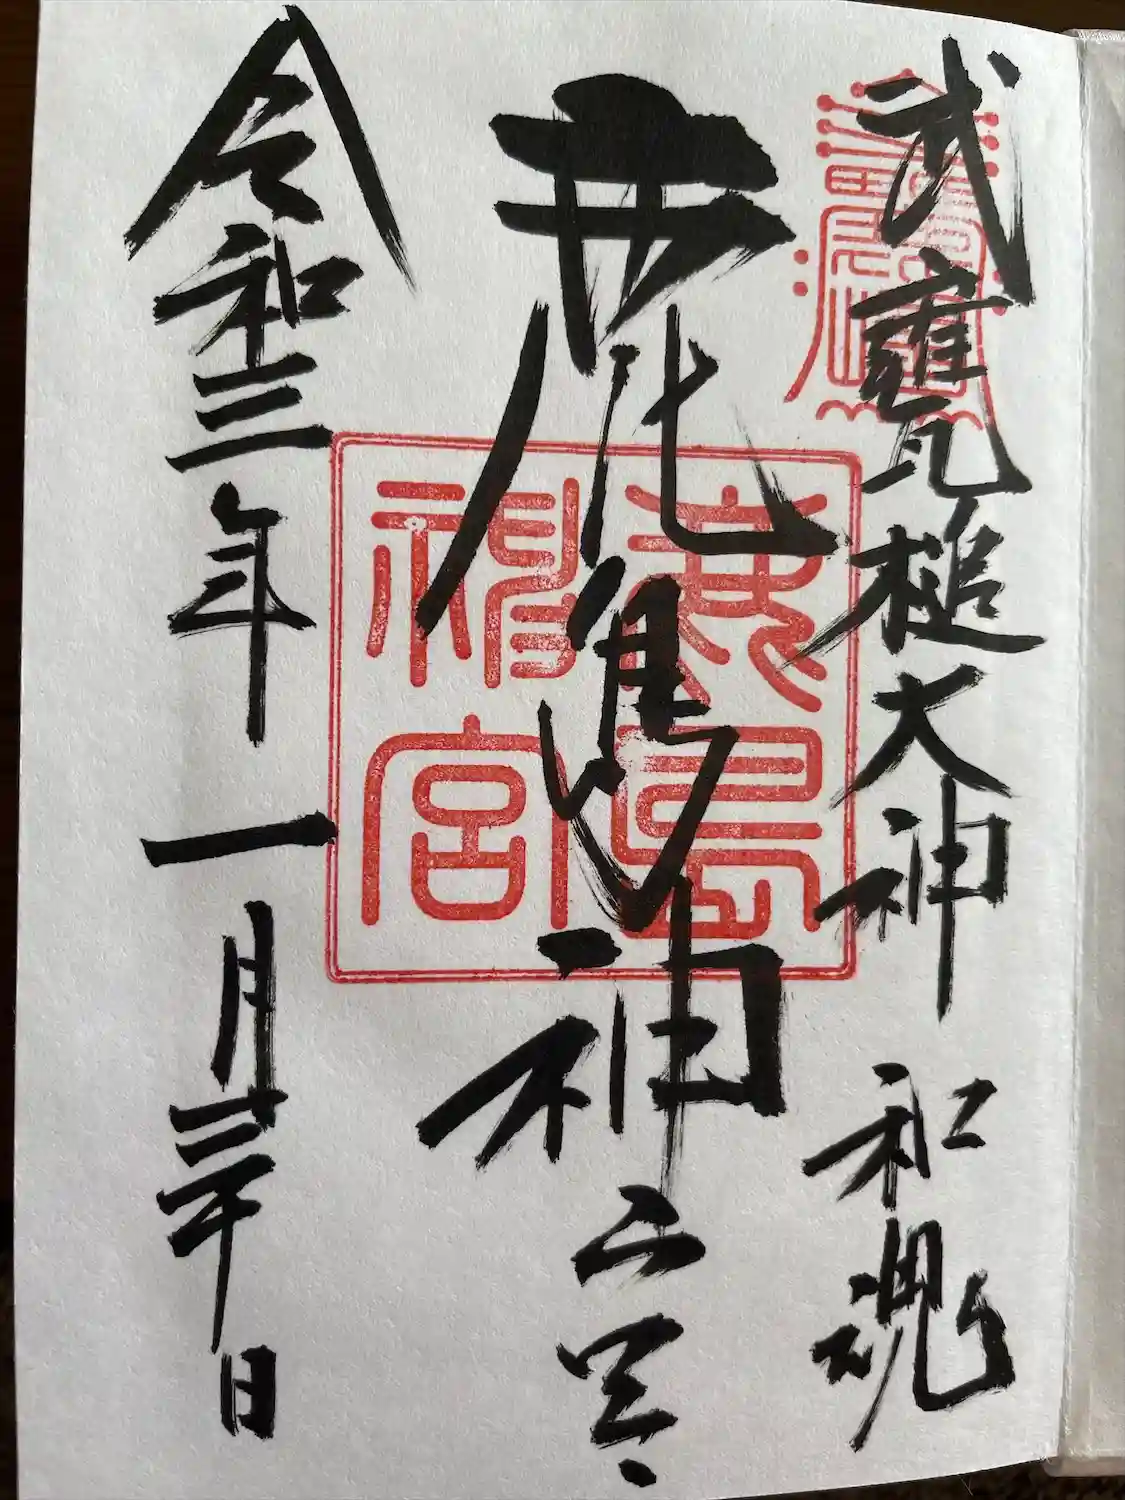 武甕槌大神 和魂
鹿島神宮
令和三年一月三十日
鹿島
神宮